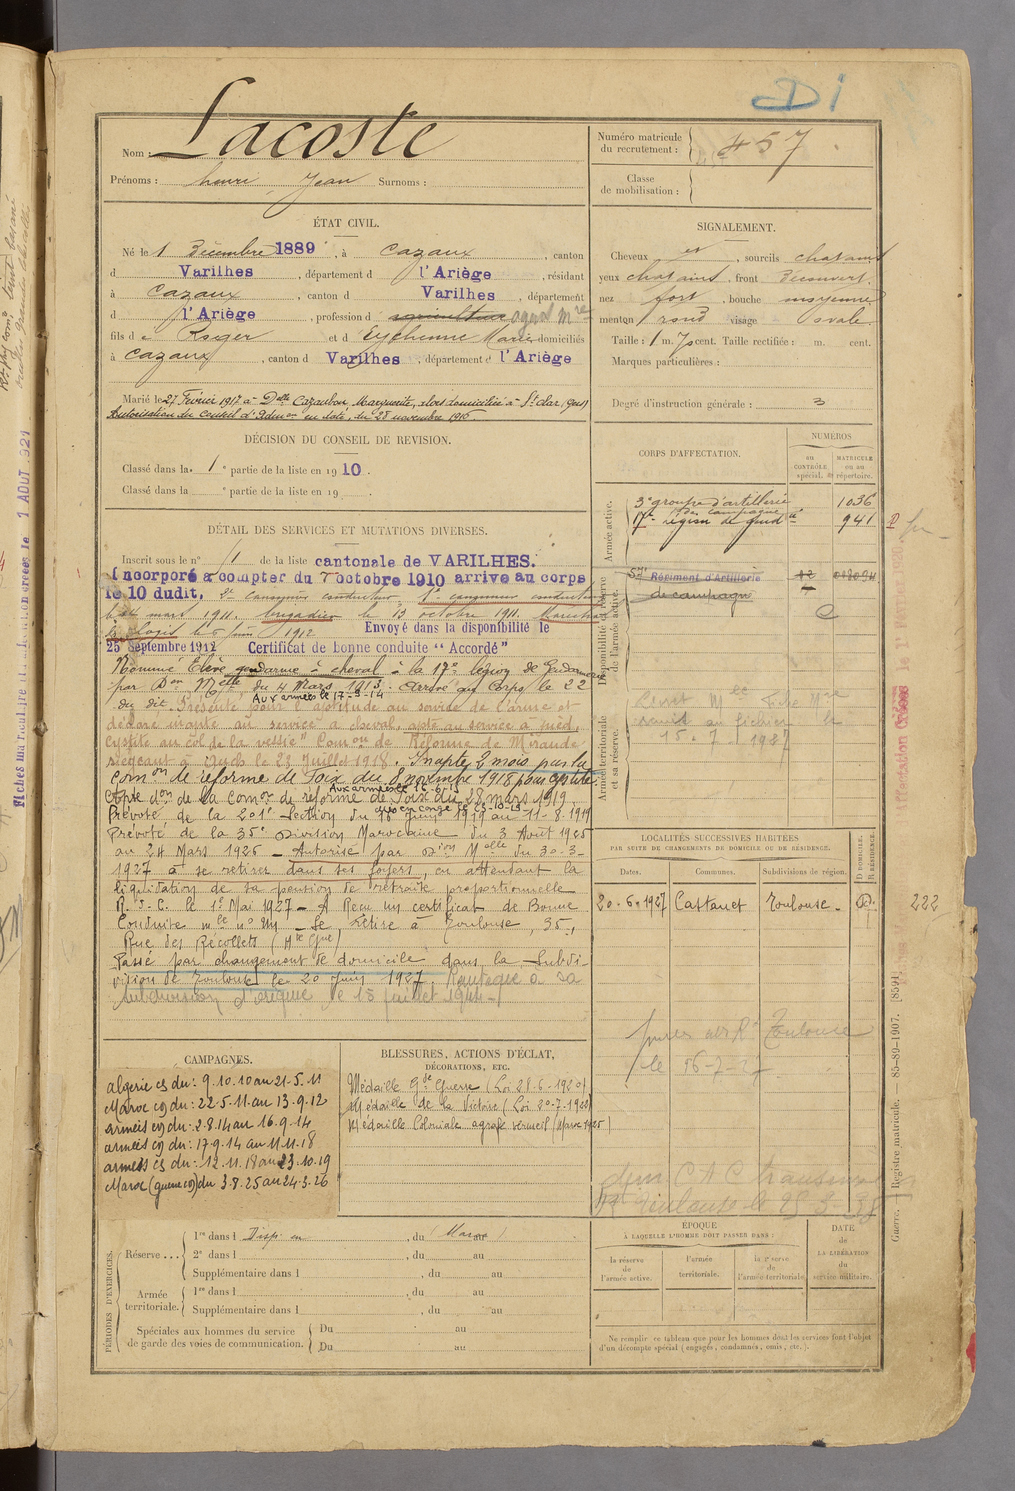 D i
Nom : Lacoste
Prénoms : henri, Jean Surnoms :
Numéro matricule du recrutement : 457
Classe de mobilisation :
ÉTAT CIVIL.
Né le 1 Décembre 1889, à Cazaux, canton
d Varilhes, département d l'Ariège, résidant
à Cazaux, canton d Varilhes, département
d l'Ariège, profession d agriculteur
fils d e Roger et d Eychenne Marie domiciliés
à Cazaux, canton d Varilhes, département d l'Ariège
Marié le 27 Février 1917 à Delle Cazaubon, Marguerite, alors domiciliée à St Clar (Gers)
Autorisation du Conseil d'admon en date du 28 novembre 1916.
SIGNALEMENT.
Cheveux et, sourcils chatains
yeux chatains, front Découvert
nez fort, bouche moyenne
menton rond visage Ovale.
Taille : 1 m. 70 cent. Taille rectifiée : m. cent.
Marques particulières :
Degré d'instruction générale : 3
DÉCISION DU CONSEIL DE REVISION.
Classé dans la 1e partie de la liste en 1910.
Classé dans la e partie de la liste en 19 .
CORPS D'AFFECTATION.
NUMÉROS
au CONTRÔLE spécial.
MATRICULE ou au répertoire.
Armée active.
3e groupe d'artillerie de campagne 1036
17e région de gend 941
Disponibilité et réserve de l'armée active.
57e Régiment d'Artillerie
de campagne
Armée territoriale et sa réserve.
15.7.1927
DÉTAIL DES SERVICES ET MUTATIONS DIVERSES.
Inscrit sous le n° 1 de la liste cantonale de VARILHES.
Incorporé à compter du 7 octobre 1910 arrivé au corps
le 10 dudit, 2e canonnier conducteur, 1er canonnier conducteur
le 24 mars 1911. brigadier le 13 octobre 1911. Maréchal
des logis le 6 juin 1912 Envoyé dans la disponibilité le
25 Septembre 1912 Certificat de bonne conduite "Accordé"
Nommé Élève gendarme à cheval à la 17e légion de Gendarmerie
par Don Melle du 4 Mars 1913. Arrivé au Corps le 22
du dit. Présenté pour l'aptitude au service de l'arme et
Aux armées le 17-3-14
déclaré inapte au service à cheval, apte au service à pied,
cystite au col de la vessie" Comon de Réforme de Mirande
siégeant à Auch le 23 Juillet 1918. Inapte 2 mois par la
comon de réforme de Foix du 8 novembre 1918 pour cystite.
don de la Comon de réforme de Foix du 28 mars 1919.
Prévôté de la 201e Section du 16 juin 1919 au 11-8-1919
Prévôté de la 35e Division Marocaine du 3 Août 1925
au 24 Mars 1926 – Autorisé par Dion Melle du 30-3-
1927 à se retirer dans ses foyers, en attendant la
liquidation de sa pension de retraite proportionnelle
R.D.C. le 1er Mai 1927 – A Reçu un certificat de Bonne
Conduite mle n° Un – Se retire à Toulouse, 35,
Rue des Récollets (Hte Gne)
Passé par changement de domicile dans la Subdi-
vision de Toulouse le 20 Juin 1927 Réintégré à sa
subdivision d'origine le 15 juillet 1944
LOCALITÉS SUCCESSIVES HABITÉES
PAR SUITE DE CHANGEMENTS DE DOMICILE OU DE RÉSIDENCE.
Dates. Communes. Subdivisions de région.
D. DOMICILE. R. RÉSIDENCE.
20-6-1927 Castanet Toulouse D. 222
Toulouse
le 16-7-27
CAMPAGNES.
Algérie cs du : 9.10.10 au 21.5.11
Maroc cg du : 22.5.11 au 13.9.12
armées cg du : 2.8.14 au 16.9.14
armées cg du : 17.9.14 au 11.11.18
armées cs du : 12.11.18 au 23.10.19
Maroc (guerre cg) du 3.8.25 au 24.3.26
BLESSURES, ACTIONS D'ÉCLAT,
DÉCORATIONS, ETC.
Médaille Gde Guerre (Loi 28-6-1920)
Médaille de la Victoire (Loi 20-7-1922)
Médaille Coloniale agrafe vermeil (Maroc 1925)
PÉRIODES D'EXERCICES.
Réserve ...
1re dans l Disp. en , du (Maroc) au
2e dans l , du au
Supplémentaire dans l , du au
Armée territoriale.
1re dans l , du au
Supplémentaire dans l , du au
Spéciales aux hommes du service de garde des voies de communication.
Du au
Du au
ÉPOQUE
À LAQUELLE L'HOMME DOIT PASSER DANS :
la réserve de l'armée active.
l'armée territoriale.
la réserve de l'armée territoriale.
DATE DE LA LIBÉRATION du service militaire.
Ne remplir ce tableau que pour les hommes dont les services font l'objet
d'un décompte spécial (engagés, condamnés, omis, etc.).
Guerre. — Registre matricule. — 85-89-1907. [8591]